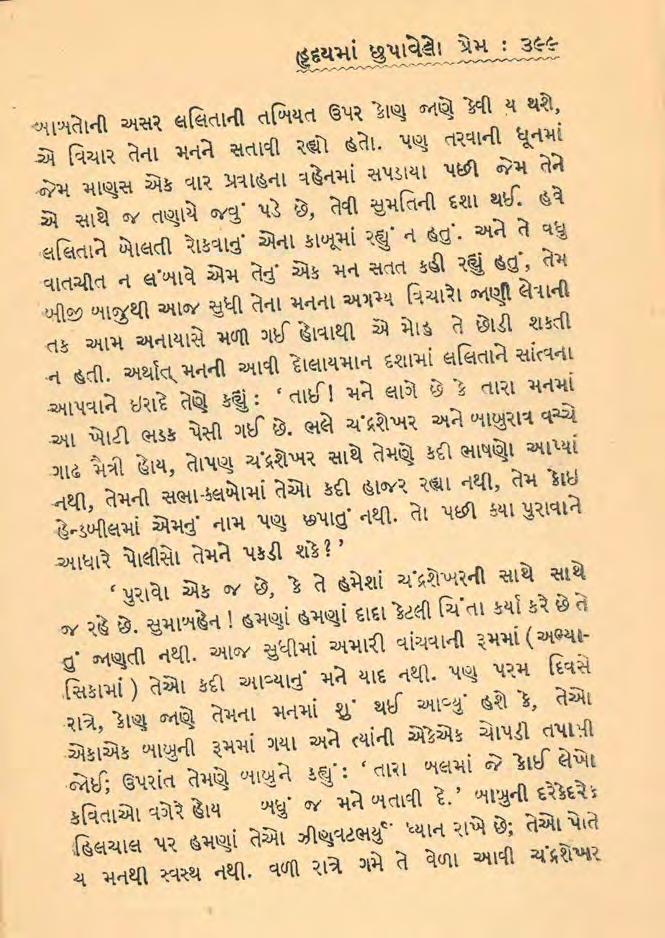 હૃદયમાં છુપાવેલો પ્રેમ : ૩૯૯
આઘાતોની અસર લલિતાની તબિયત ઉપર કોણ જાણે કેવી ય થશે,
એ વિચાર તેના મનને સતાવી રહ્યો હતો. પણ તરવાની ધૂનમાં
જેમ માણસ એક વાર પ્રવાહના વહેનમાં સપડાયા પછી જેમ તેને
એ સાથે જ તણાયે જવું પડે છે, તેવી સુમતિની દશા થઈ. હવે
લલિતાને બોલતી રોકવાનું એના કાબૂમાં રહ્યું ન હતું. અને તે વધુ
વાતચીત ન લંબાવે એમ તેનું એક મન સતત કહી રહ્યું હતું, તેમ
બીજી બાજુથી આજ સુધી તેના મનના અગમ્ય વિચારો જાણી લેવાની
તક આમ અનાયાસે મળી ગઈ હોવાથી એ મોહ તે છોડી શકતી
ન હતી. અર્થાત્ મનની આવી દોલાયમાન દશામાં લલિતાને સાંત્વના
આપવાને ઇરાદે તેણે કહ્યું : ‘ તાઈ ! મને લાગે છે કે તારા મનમાં
આ ખોટી ભડક પેસી ગઈ છે. ભલે ચંદ્રશેખર અને બાબુરાવ વચ્ચે
ગાઢ મૈત્રી હોય, તોપણ ચંદ્રશેખર સાથે તેમણે કદી ભાષણો આપ્યાં
નથી, તેમની સભા-ક્લબોમાં તેઓ કદી હાજર રહ્યા નથી, તેમ કોઇ
હેન્ડબીલમાં એમનું નામ પણ છપાતું નથી. તો પછી ક્યા પુરાવાને
આધારે પોલીસો તેમને પકડી શકે ? ’
‘ પુરાવો એક જ છે, કે તે હમેશાં ચંદ્રશેખરની સાથે સાથે
જ રહે છે. સુમાબહેન ! હમણાં હમણાં દાદા કેટલી ચિંતા કર્યા કરે છે તે
તું જાણતી નથી. આજ સુધીમાં અમારી વાંચવાની રૂમમાં ( અભ્યા-
સિકામાં ) તેઓ કદી આવ્યાનું મને યાદ નથી. પણ પરમ દિવસે
રાત્રે, કોણ જાણે તેમના મનમાં શું થઈ આવ્યું હશે કે, તેઓ
એકાએક બાબુની રૂમમાં ગયા અને ત્યાંની એકેએક ચોપડી તપાસી
જોઈ; ઉપરાંત તેમણે બાબુને કહ્યું : ‘ તારા બલમાં જે કોઈ લેખો
કવિતાઓ વગેરે હોય બધું જ મને બતાવી દે.’ બાબુની દરેકેદરેક
હિલચાલ પર હમણાં તેઓ ઝીણવટભર્યું ધ્યાન રાખે છે; તેઓ પોતે
ય મનથી સ્વસ્થ નથી. વળી રાત્રે ગમે તે વેળા આવી ચંદ્રશેખર